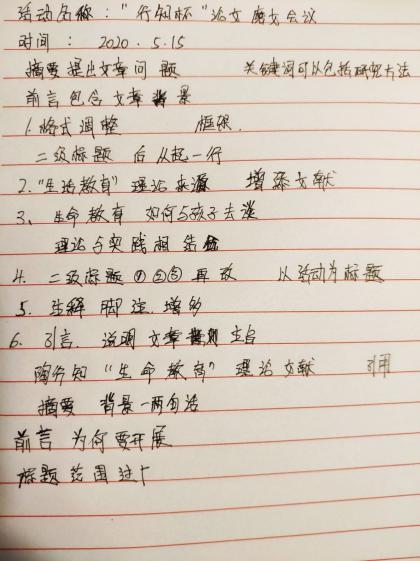 活动名称：“行知杯”论文 磨文会议
时间 ： 2020 . 5.15
摘要 提出文章问题 关键词可以包括研究方法
前言 包含 文章 背景
1. 格式调整 框架.
二级标题 后 从起一行
2. “生活教育”理论 来源 增添文献
3、 生命教育 如何与孩子去谈
理论与实践相 结合
4. 二级标题 ①②③ 再改 以活动为标题
5. 注解 脚注. 增多
6. 引言. 说明 文章 主旨
陶行知 “生命教育” 理论 文献 引用
摘要 背景一两句话
前言 为何要开展
标题 范围过广